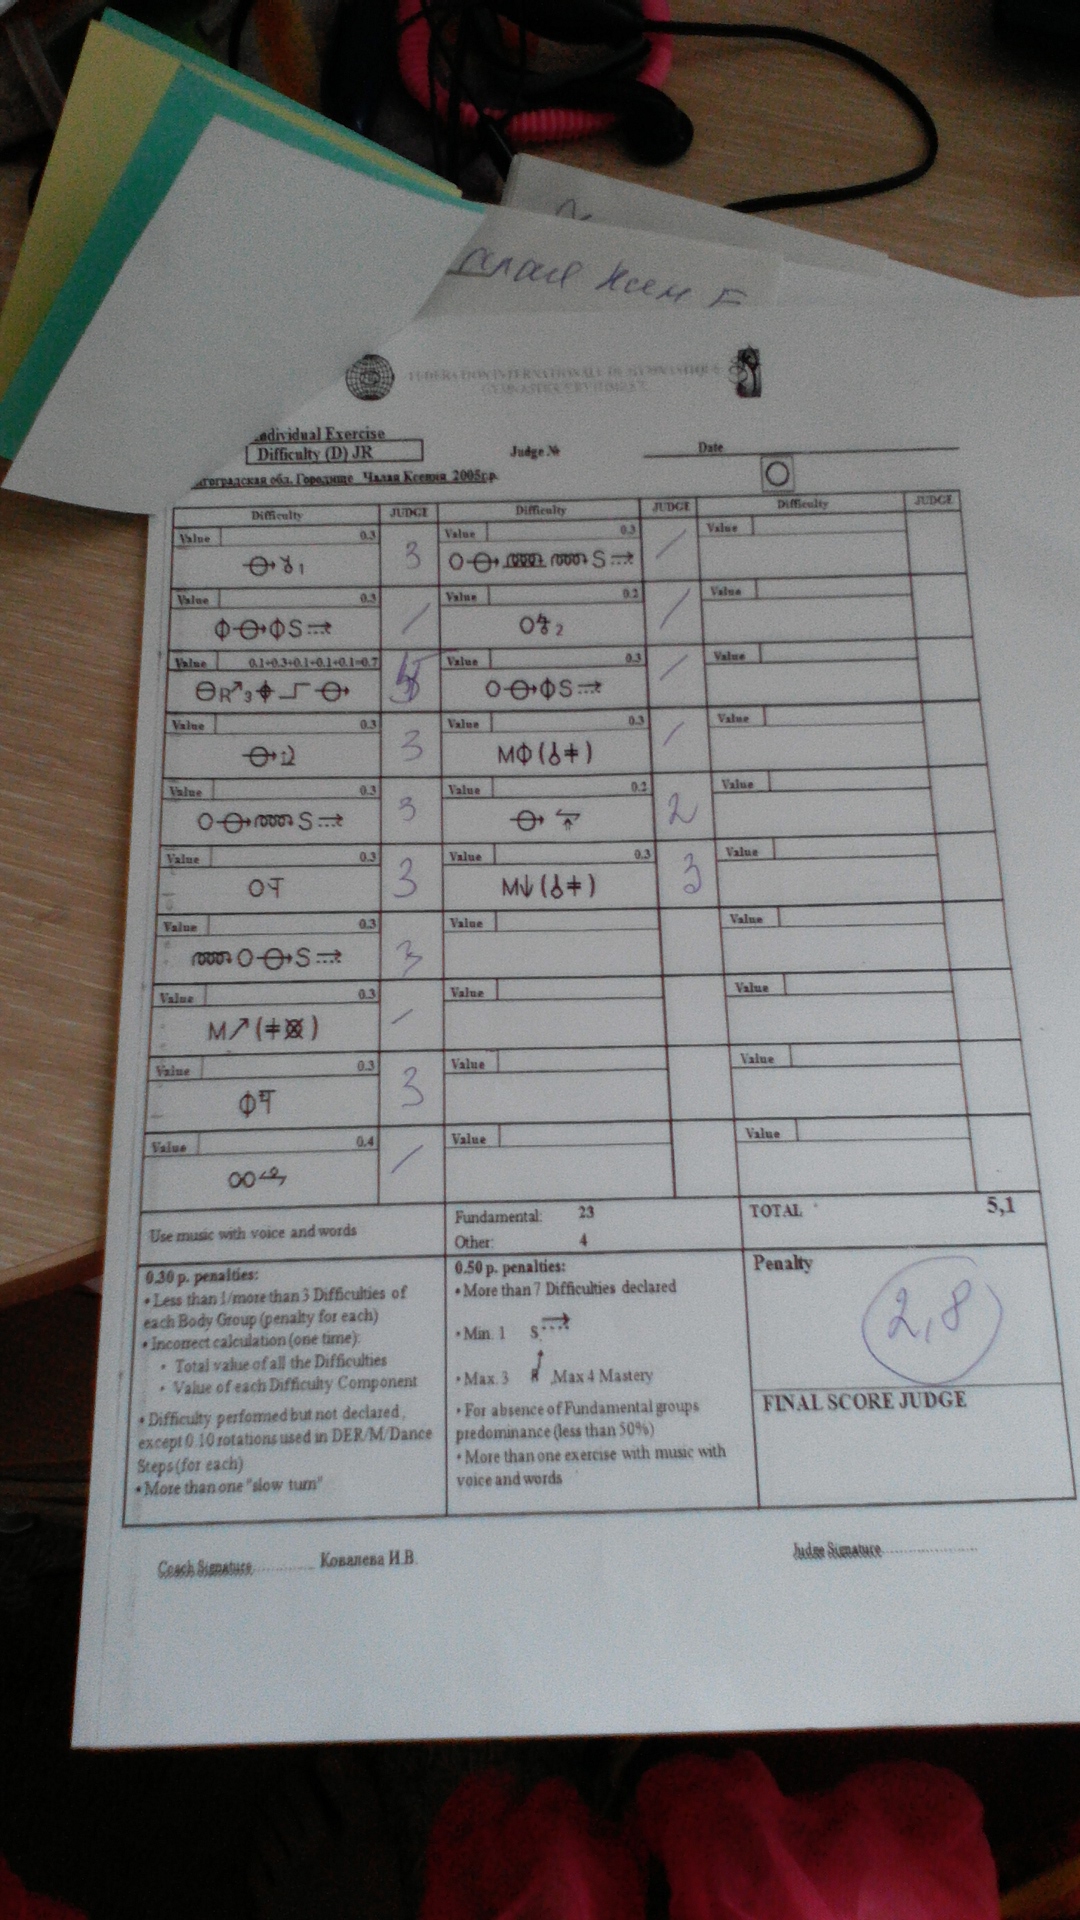 FEDERATION INTERNATIONALE DE GYMNASTIQUE
Individual Exercise
Difficulty (D) JR
Judge №
Date
Городище Чалая Ксения 2005г.р.
Difficulty JUDGE Difficulty JUDGE Difficulty JUDGE
Value 0.3 Value 0.3 Value
3 /
Value 0.3 Value 0.2 Value
/ /
Value 0.1+0.3+0.1+0.1+0.1=0.7 Value 0.3 Value
/
Value 0.3 Value 0.3 Value
3 /
Value 0.3 Value 0.2 Value
3 2
Value 0.3 Value 0.3 Value
3 3
Value 0.3 Value Value
3
Value 0.3 Value Value
/
Value 0.3 Value Value
3
Value 0.4 Value Value
/
Use music with voice and words
Fundamental: 23
Other: 4
TOTAL 5,1
0.30 p. penalties:
• Less than 1/more than 3 Difficulties of
each Body Group (penalty for each)
• Incorrect calculation (one time):
• Total value of all the Difficulties
• Value of each Difficulty Component
• Difficulty performed but not declared,
except 0.10 rotations used in DER/M/Dance
Steps (for each)
• More than one "slow turn"
0.50 p. penalties:
• More than 7 Difficulties declared
• Min. 1 S
• Max. 3 R ,Max 4 Mastery
• For absence of Fundamental groups
predominance (less than 50%)
• More than one exercise with music with
voice and words
Penalty
2,8
FINAL SCORE JUDGE
Coach Signature.............. Ковалева И.В.
Judge Signature....................